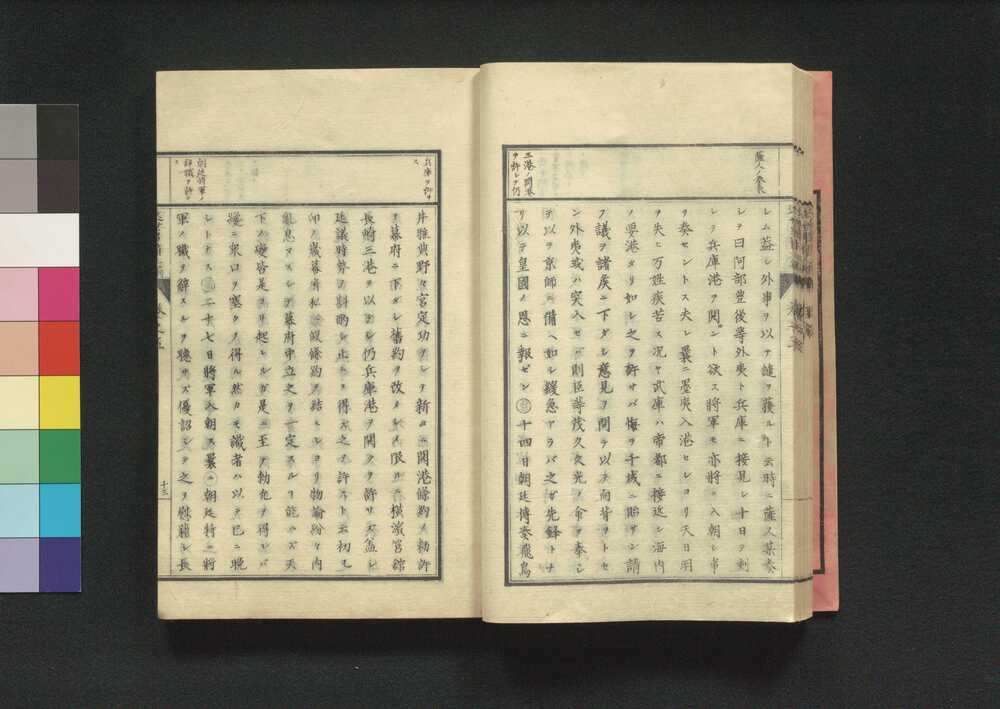 薩人ノ奏表
レム蓋シ外事ヲ以テ譴ヲ獲ルト云時ニ薩人某奏
シテ曰阿部豊後等外夷ト兵庫ニ接見シ十日ヲ刻
シテ兵庫港ヲ開ント欲ス將軍モ亦將ニ入朝シ事
ヲ奏セントス夫レ曩ニ墨夷入港セシヨリ天日明
ヲ失ヒ万姓疾苦ス况ヤ武庫ハ帝都ニ接近シ海内
ノ要港タリ如シ之ヲ許サバ悔ヲ千歳ニ貽サン請
フ議ヲ諸矦ニ下ダシ意見ヲ問テ以テ向背ヲトセ
ン外夷或ハ突入セバ則臣等茂久久光ノ命ヲ奉シ
テ以テ京師ニ備ヘ如シ緩急アラバ之ガ先鋒トナ
リ以テ皇國ノ恩ニ報ゼン十四日朝廷傳奏飛鳥
三港ノ開港
ヲ許シテ仍
兵庫ヲ許サ
ス
井雅典野々宮定功ヲシテ新ニ開港條約ノ勅許
ヲ幕府ニ下ダシ舊約ヲ改メ限ルニ橫濱箱館
長崎三港ヲ以テシ仍兵庫港ヲ開クヲ許サズ蓋シ
廷議時勢ヲ斟酌シ止ムヲ得ズ之ヲ許スト云初メ
卯ノ歳幕府私ニ假條約ヲ結ヒシヨリ物論紛々内
亂息マズシテ幕府中立之ヲ一定スル能ハズ天
下ノ變皆是ヨリ起レルガ是ニ至テ勅允ヲ得シバ
纔ニ衆口ヲ塞クヲ得ル然カモ識者ハ以テ已ニ晩
シトナス二十七日將軍入朝ス曩ニ朝廷將ニ將
軍ノ職ヲ辭スルヲ聽サズ優詔シテ之ヲ慰藉シ長
朝廷將軍ノ
辭職ヲ許サ
ス
十三